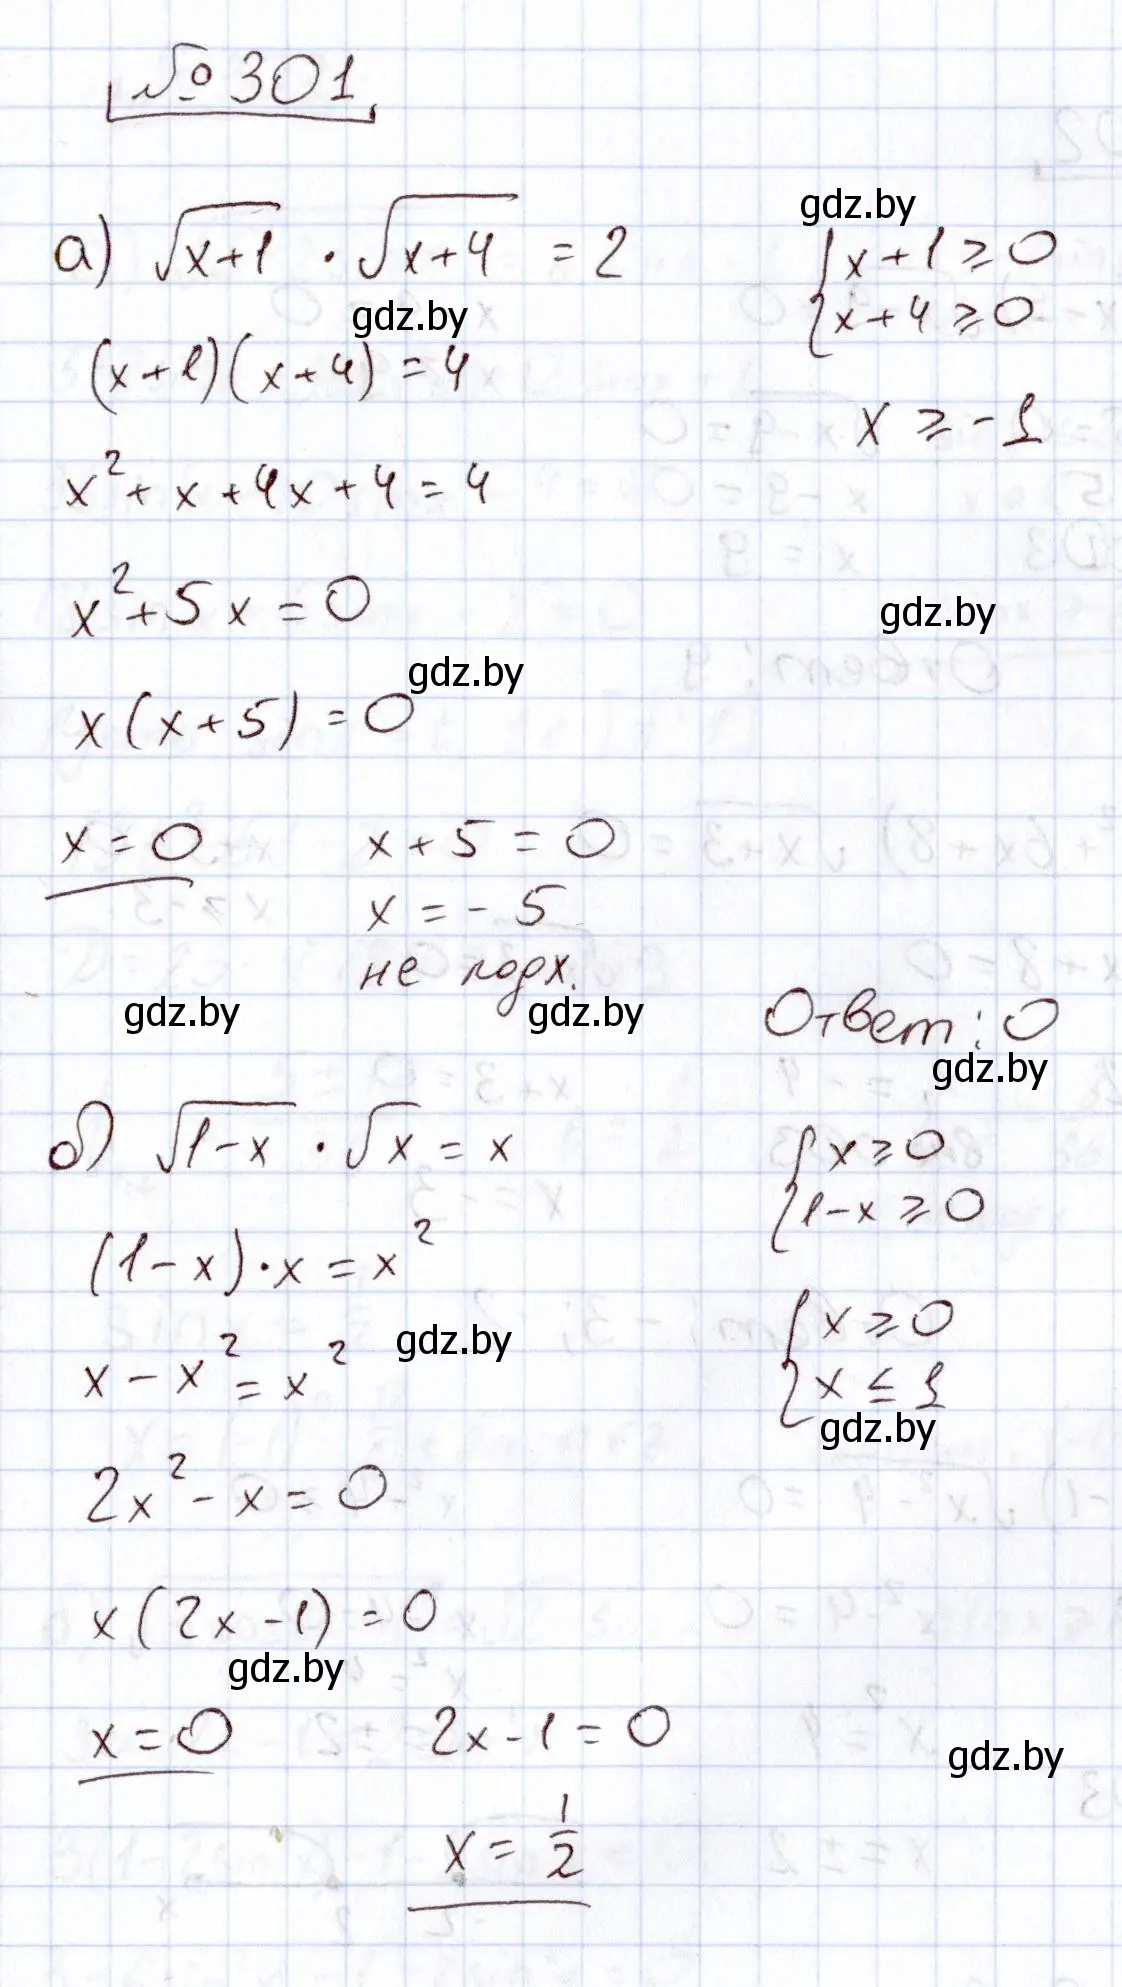 № 301
gdz.by
а) √(x+1) · √(x+4) = 2 { x+1 ≥ 0
gdz.by { x+4 ≥ 0
(x+1)(x+4) = 4
x ≥ -1
x² + x + 4x + 4 = 4
x² + 5x = 0
gdz.by
gdz.by
x(x+5) = 0
x = 0 x + 5 = 0
x = - 5
не подх.
gdz.by gdz.by Ответ: 0
gdz.by
б) √(1-x) · √x = x { x ≥ 0
{ 1-x ≥ 0
(1-x)·x = x²
{ x ≥ 0
gdz.by
x - x² = x² { x ≤ 1
gdz.by
2x² - x = 0
x(2x-1) = 0
gdz.by
x = 0 2x - 1 = 0
gdz.by
x = 1/2